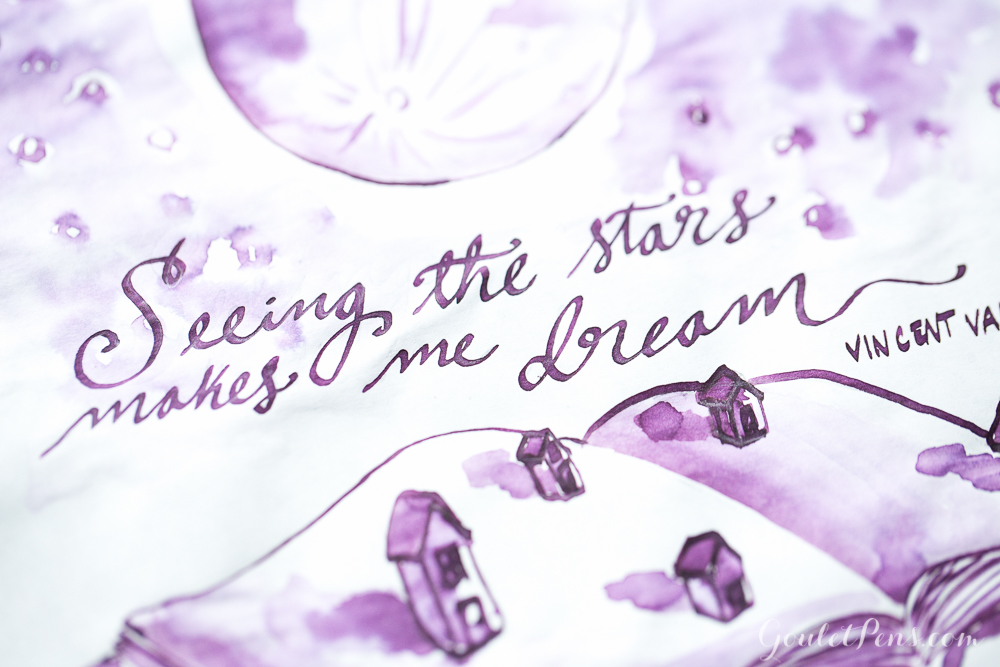 Seeing the stars
makes me dream
VINCENT VA
GouletPens.com